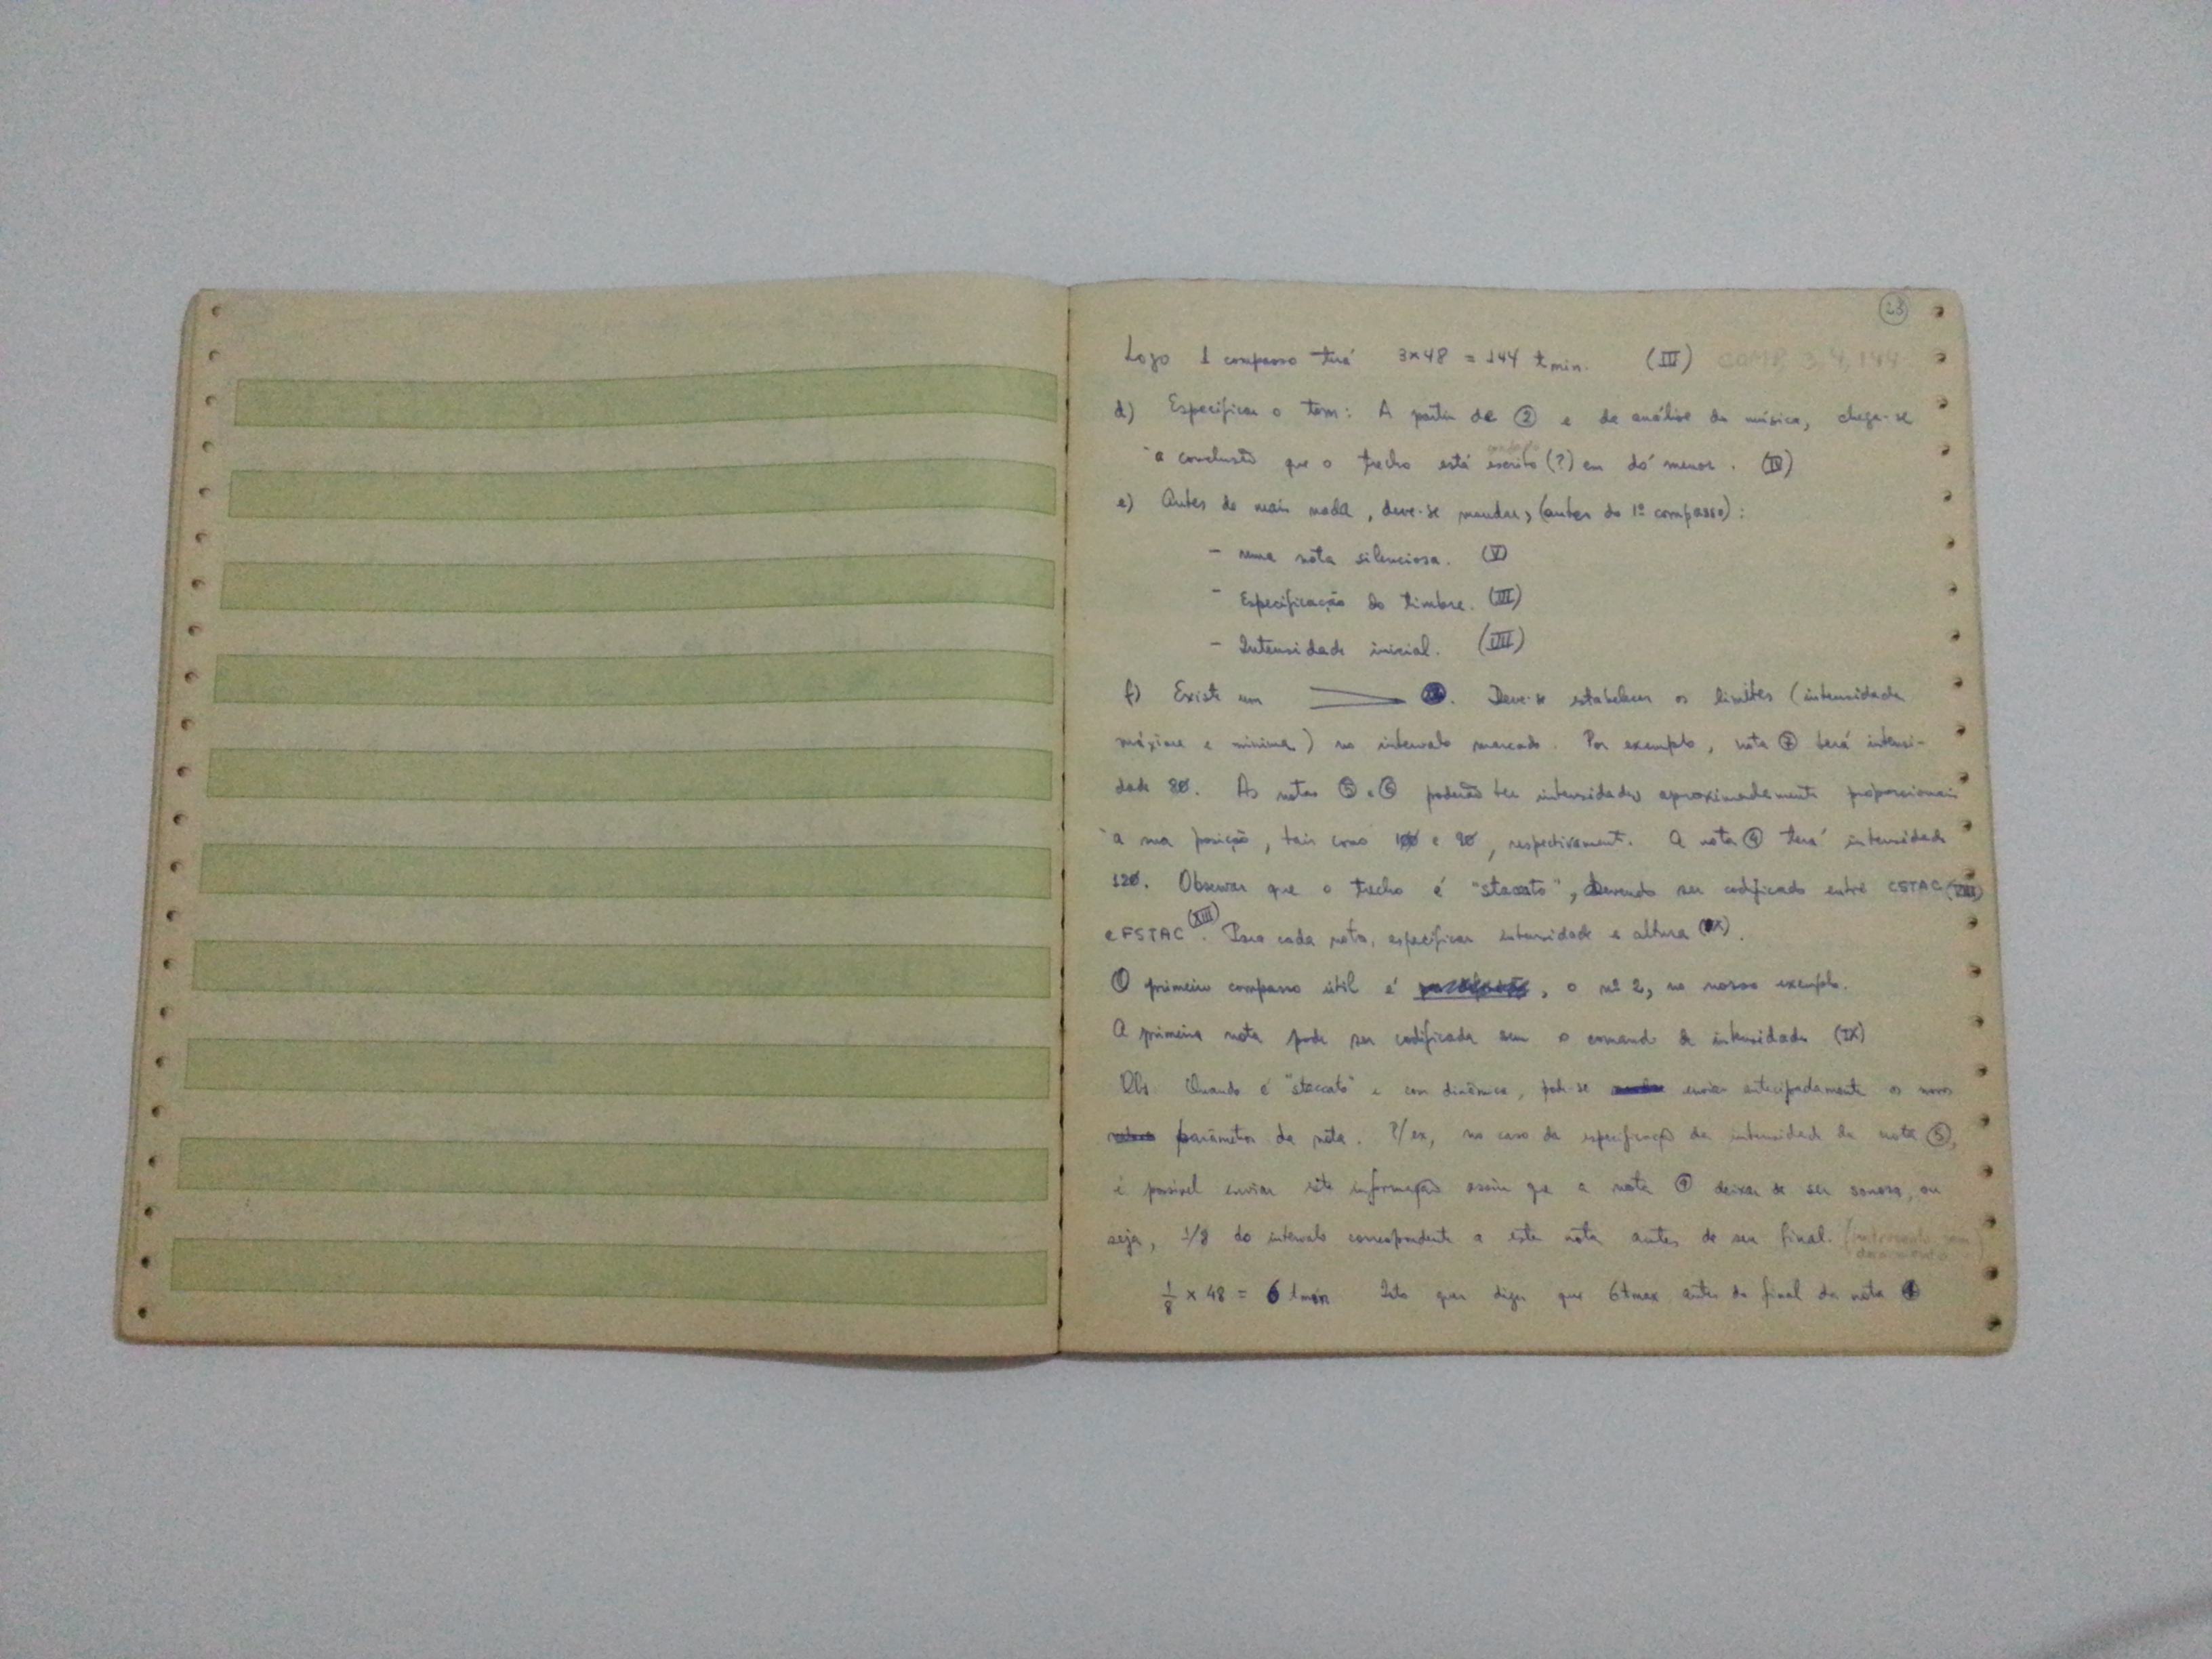 23
Logo 1 compasso terá 3x48 = 144 tmin. (III) COMP 3,4,144
d) Especificar o tom: A partir de ② e da análise da música, chega-se
à conclusão que o trecho está escrito (?) em dó menor. (IV)
e) Antes de mais nada, deve-se mandar, (antes do 1º compasso):
- uma nota silenciosa. (V)
- Especificação do timbre. (VI)
- Intensidade inicial. (VII)
f) Existe um . Deve-se estabelecer os limites (intensidade
máxima e mínima) no intervalo marcado. Por exemplo, nota ⑦ terá intensi-
dade 80. As notas ⑤ e ⑥ poderão ter intensidades aproximadamente proporcionais
à sua posição, tais como 100 e 90, respectivamente. A nota ④ terá intensidade
120. Observar que o trecho é "staccato", devendo ser codificado entre CSTAC (VIII)
e FSTAC (XIII). Para cada nota, especificar intensidade e altura (IX).
O primeiro compasso útil é , o nº 2, no nosso exemplo.
A primeira nota pode ser codificada sem o comando de intensidade (IX)
Obs: Quando é "staccato" e com dinâmica, pode-se enviar antecipadamente os novos
parâmetros da nota. P/ex, no caso de especificação da intensidade da nota ⑤,
é possível enviar esta informação assim que a nota ④ deixar de ser sonora, ou
seja, 1/8 do intervalo correspondente a esta nota antes do seu final.
1/8 x 48 = 6 tmin Isto quer dizer que 6tmin antes do final da nota ④